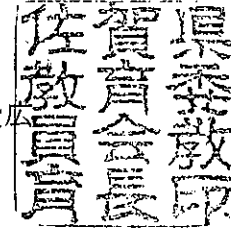 佐賀県
教育委
員会教
育長印